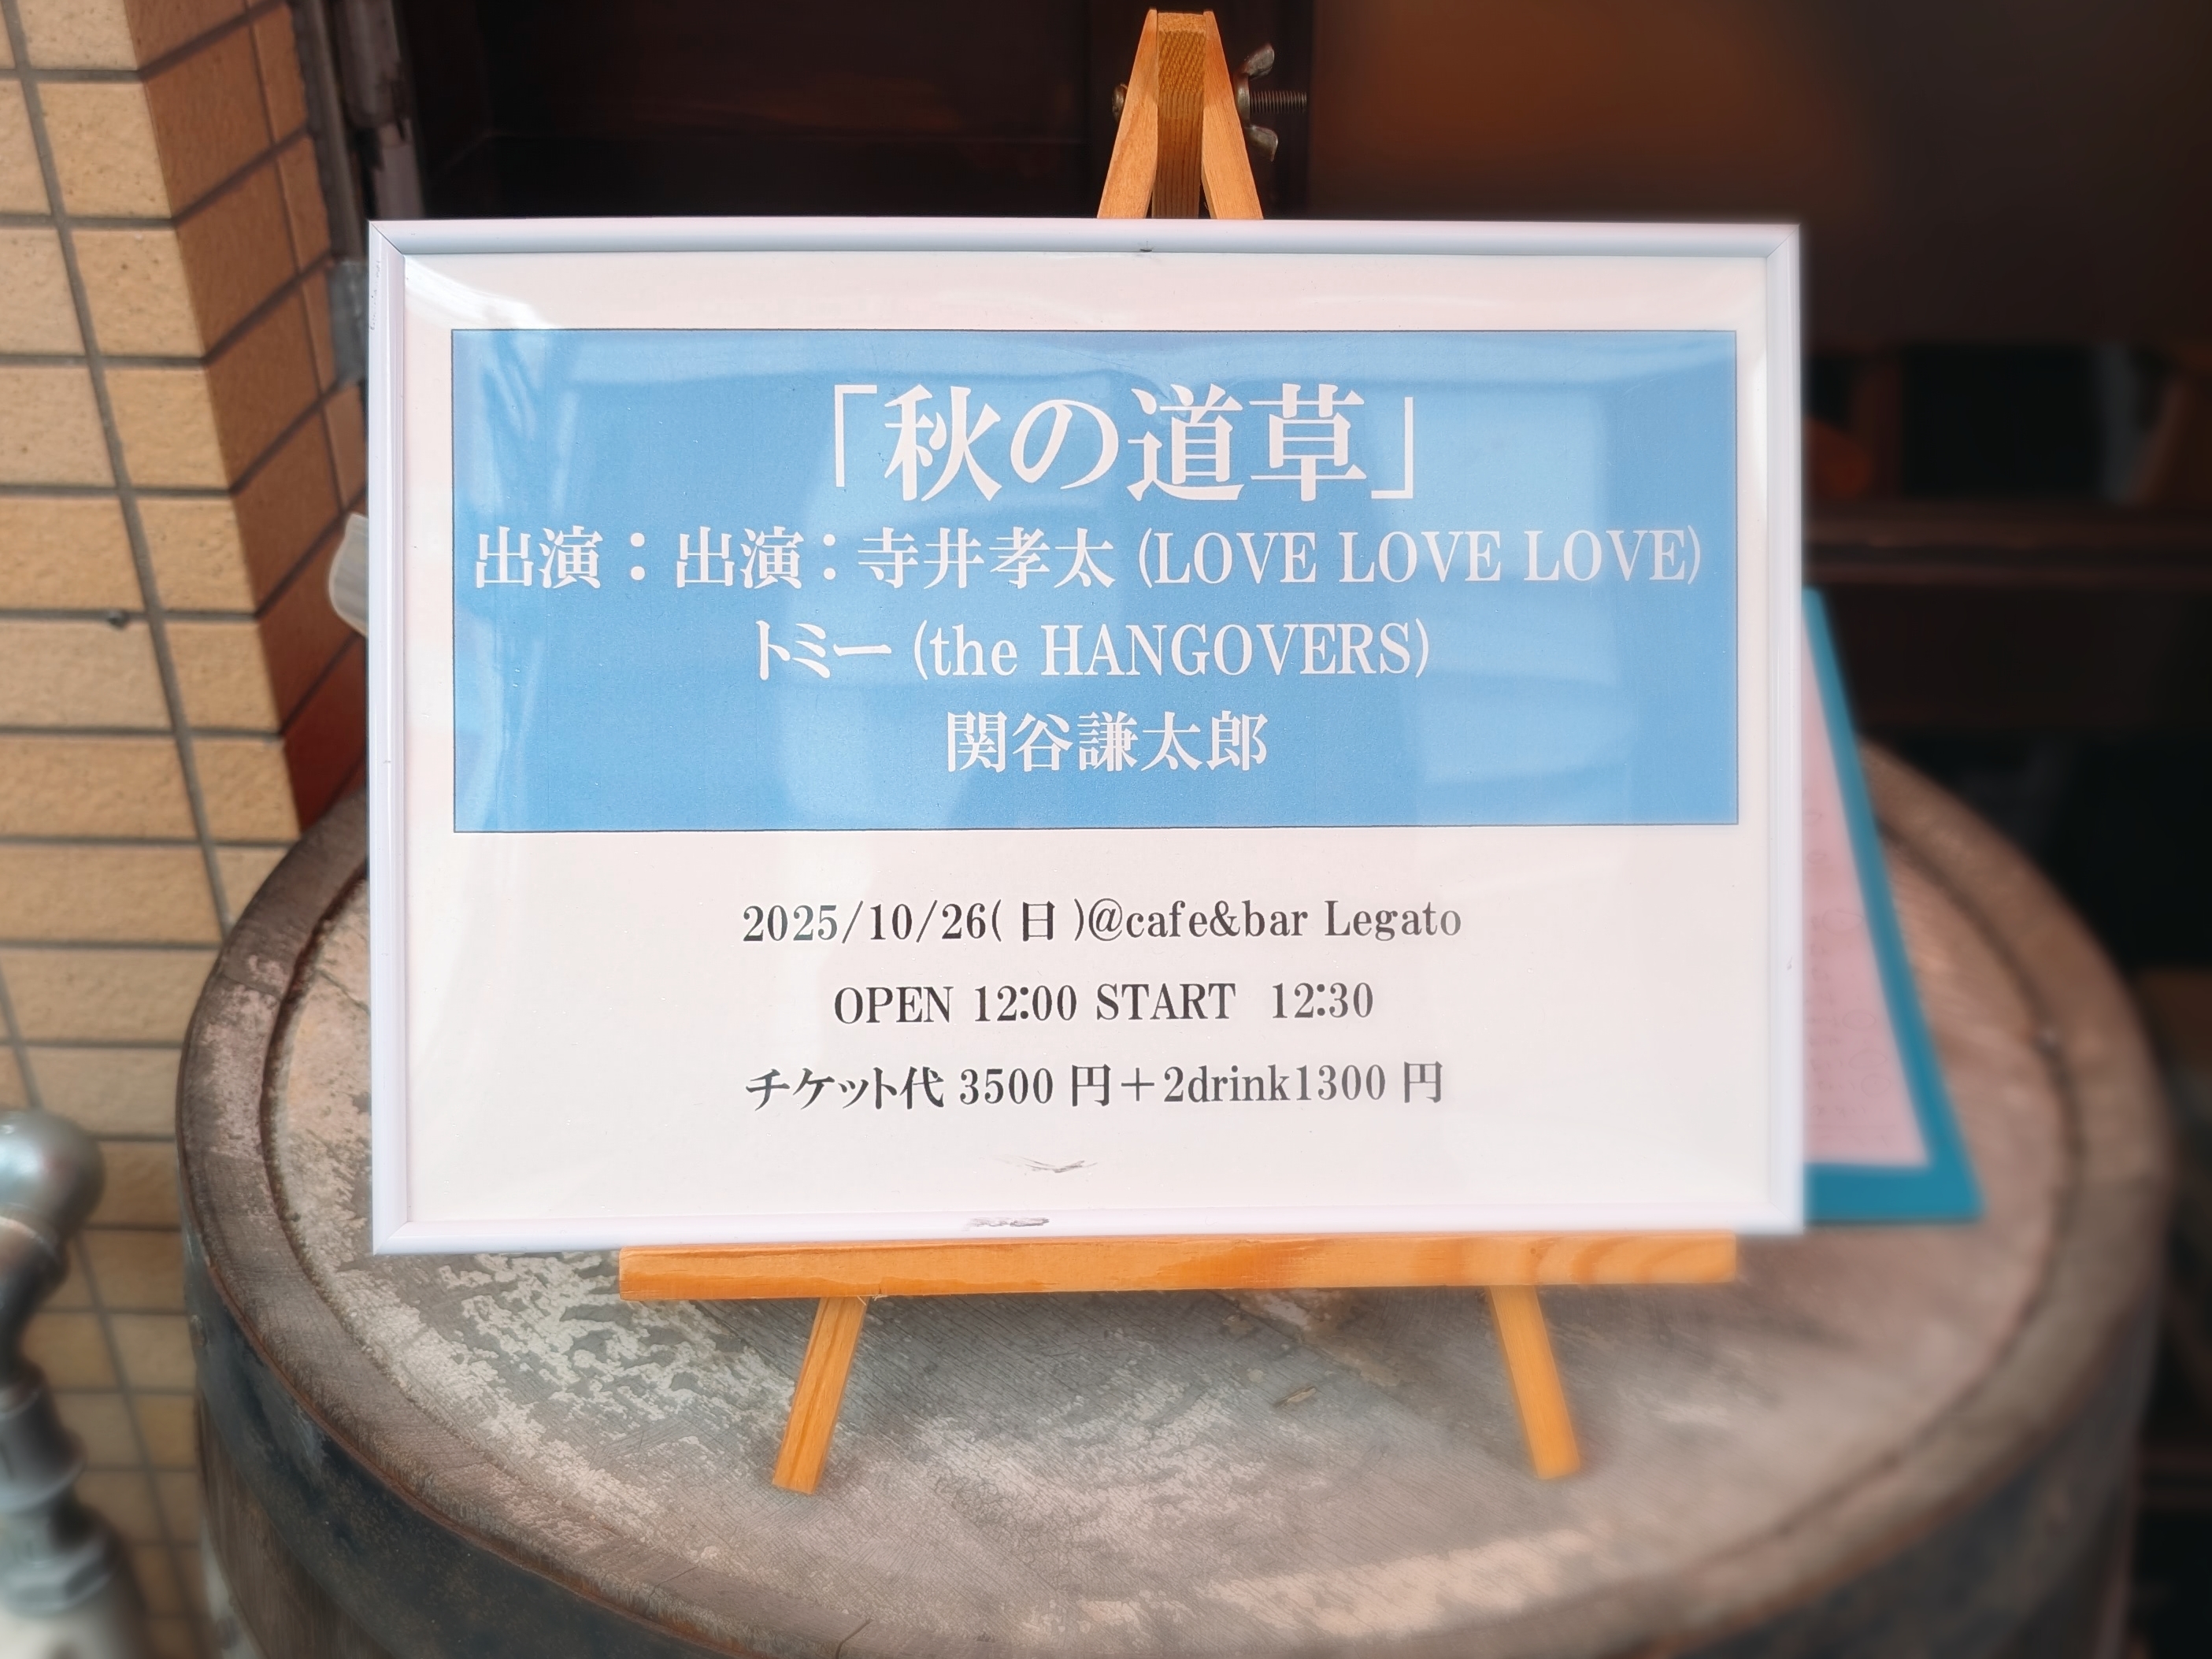 「秋の道草」
出演：出演：寺井孝太 (LOVE LOVE LOVE)
トミー (the HANGOVERS)
関谷謙太郎
2025/10/26( 日 )@cafe&bar Legato
OPEN 12:00 START 12:30
チケット代 3500 円＋2drink1300 円